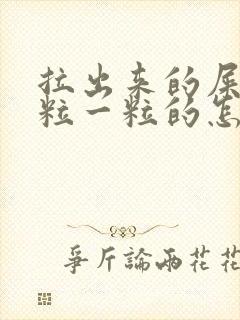 拉出来的屎
粒一粒的怎
爭斤論兩花花